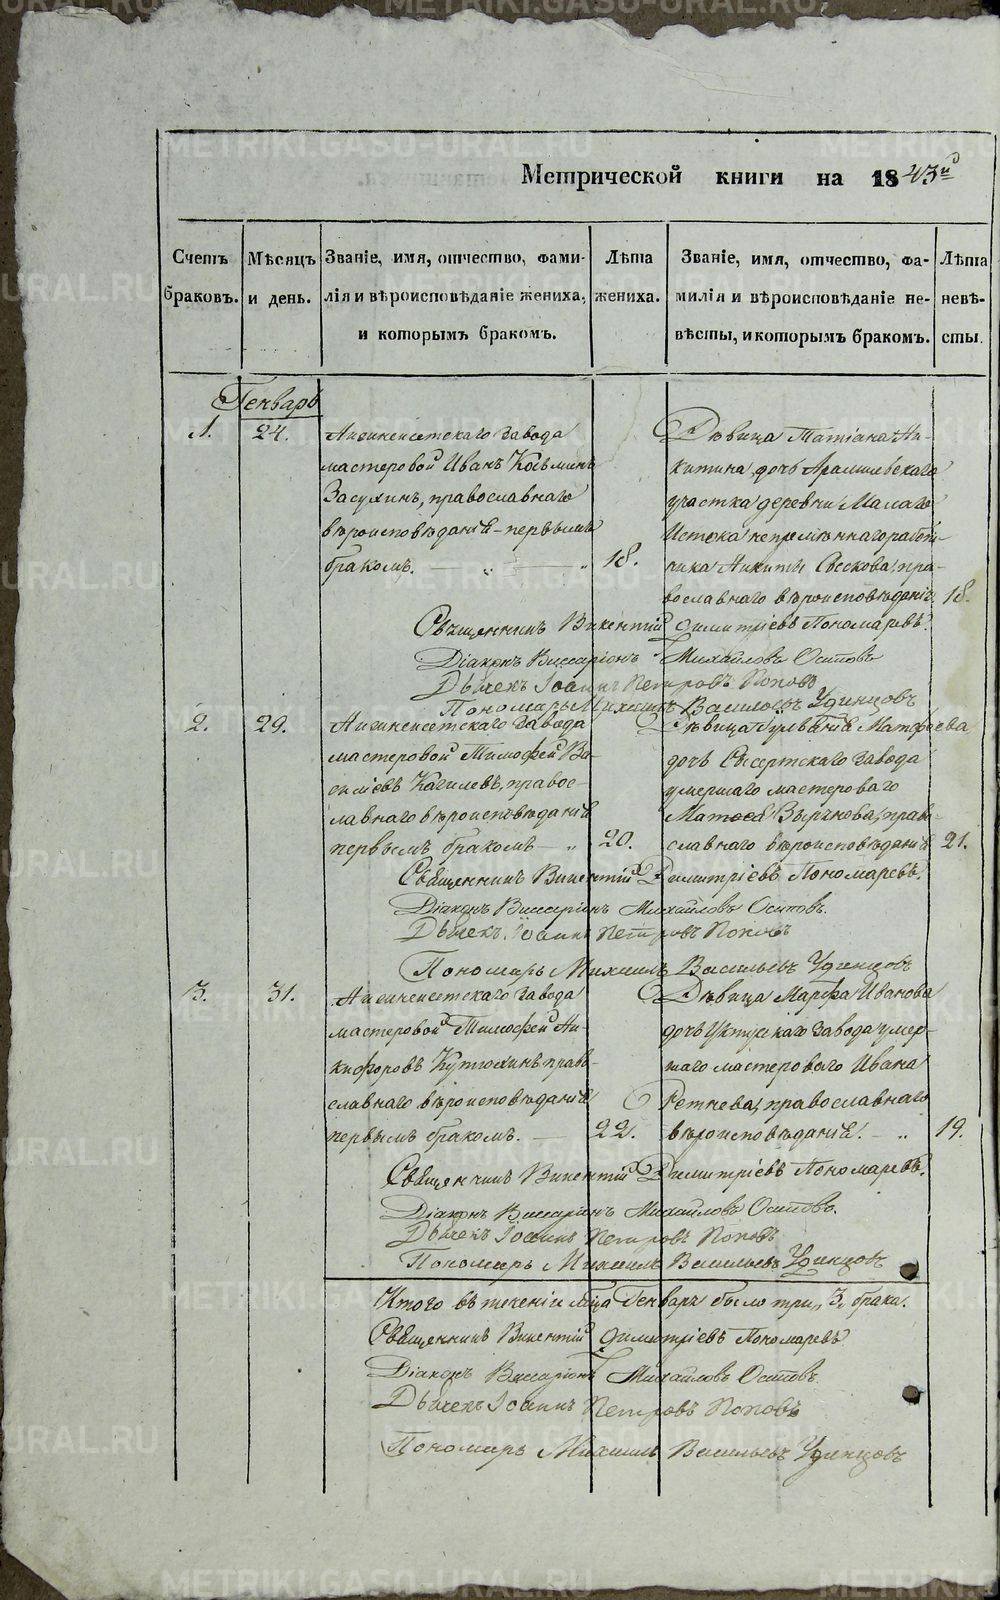 METRIKI.GASO-URAL.RU
Метрической книги на 1843й
Счетъ браковъ.
Мѣсяцъ и день.
Званіе, имя, отчество, фами-
лія и вѣроисповѣданіе жениха,
и которымъ бракомъ.
Лѣта жениха.
Званіе, имя, отчество, фа-
милія и вѣроисповѣданіе не-
вѣсты, и которымъ бракомъ.
Лѣта невѣ-
сты.
Генварь
1. 24.
Нижнеисетскаго завода
мастеровой Иванъ Козьминъ
Засухинъ, православнаго
вѣроисповѣданія первымъ
бракомъ. 18.
Дѣвица Татіана Ни-
китина дочь Арамильскаго
участка деревни Малаго
Истока непремѣннаго работ-
ника Никиты православнаго вѣроисповѣданія 18.
Священникъ Викентій Димитріевъ Пономаревъ.
Діаконъ Виссаріонъ Михайловъ Осиповъ
Дьячекъ Іоаннъ Петровъ Поповъ
Пономарь Михаилъ Васильевъ Удинцовъ
2. 29.
Нижнеисетскаго завода
мастеровой Тимофей Ва-
сильевъ правос-
лавнаго вѣроисповѣданія
первымъ бракомъ 20.
Дѣвица Матфеева
дочь Сысертскаго завода
умершаго мастероваго
Матфея право-
славнаго вѣроисповѣданія 21.
Священникъ Викентій Димитріевъ Пономаревъ.
Діаконъ Виссаріонъ Михайловъ Осиповъ.
Дьячекъ Іоаннъ Петровъ Поповъ
Пономарь Михаилъ Васильевъ Удинцовъ
3. 31.
Нижнеисетскаго завода
мастеровой Тимофей Ни-
кифоровъ право-
славнаго вѣроисповѣданія
первымъ бракомъ. 22.
Дѣвица Марфа Иванова
дочь Уктусскаго завода умер-
шаго мастероваго Ивана
Ретнева, православнаго
вѣроисповѣданія. 19.
Священникъ Викентій Димитріевъ Пономаревъ.
Діаконъ Виссаріонъ Михайловъ Осиповъ.
Дьячекъ Іоаннъ Петровъ Поповъ
Пономарь Михаилъ Васильевъ Удинцовъ
Итого въ теченіи мца Генваря было три, 3, брака.
Священникъ Викентій Димитріевъ Пономаревъ
Діаконъ Виссаріонъ Михайловъ Осиповъ
Дьячекъ Іоаннъ Петровъ Поповъ
Пономарь Михаилъ Васильевъ Удинцовъ